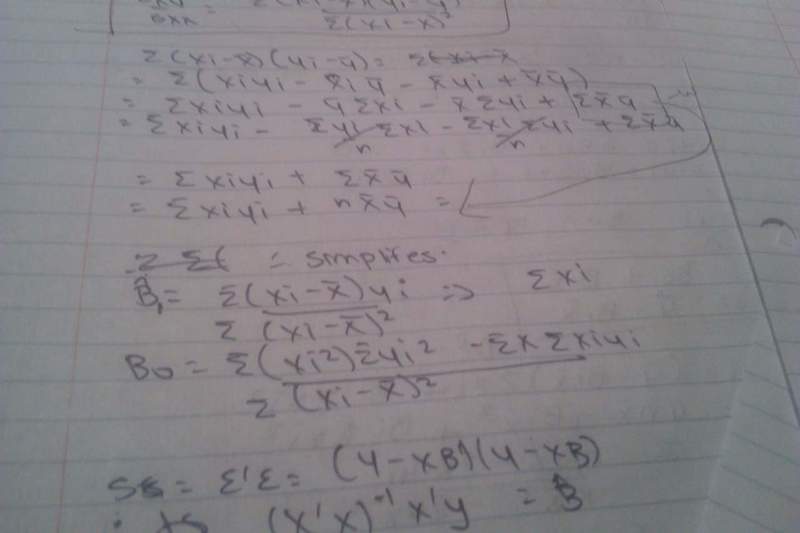 Σ(xi-x̄)²
Σ(xi-x̄)(yi-ȳ) =
= Σ(xiyi - xiȳ - x̄yi + x̄ȳ)
= Σxiyi - ȳΣxi - x̄Σyi + Σx̄ȳ
= Σxiyi - Σyi/n Σxi - Σxi/n Σyi + Σx̄ȳ
= Σxiyi + Σx̄ȳ
= Σxiyi + nx̄ȳ =
= simplifies.
B̂₁ = Σ(xi-x̄)yi / Σ(xi-x̄)² => Σxi
B₀ = Σ(xi²)Σyi² - ΣxΣxiyi / Σ(xi-x̄)²
SS = Ɛ'Ɛ = (y-XB)'(y-XB)
(X'X)⁻¹X'y = B̂